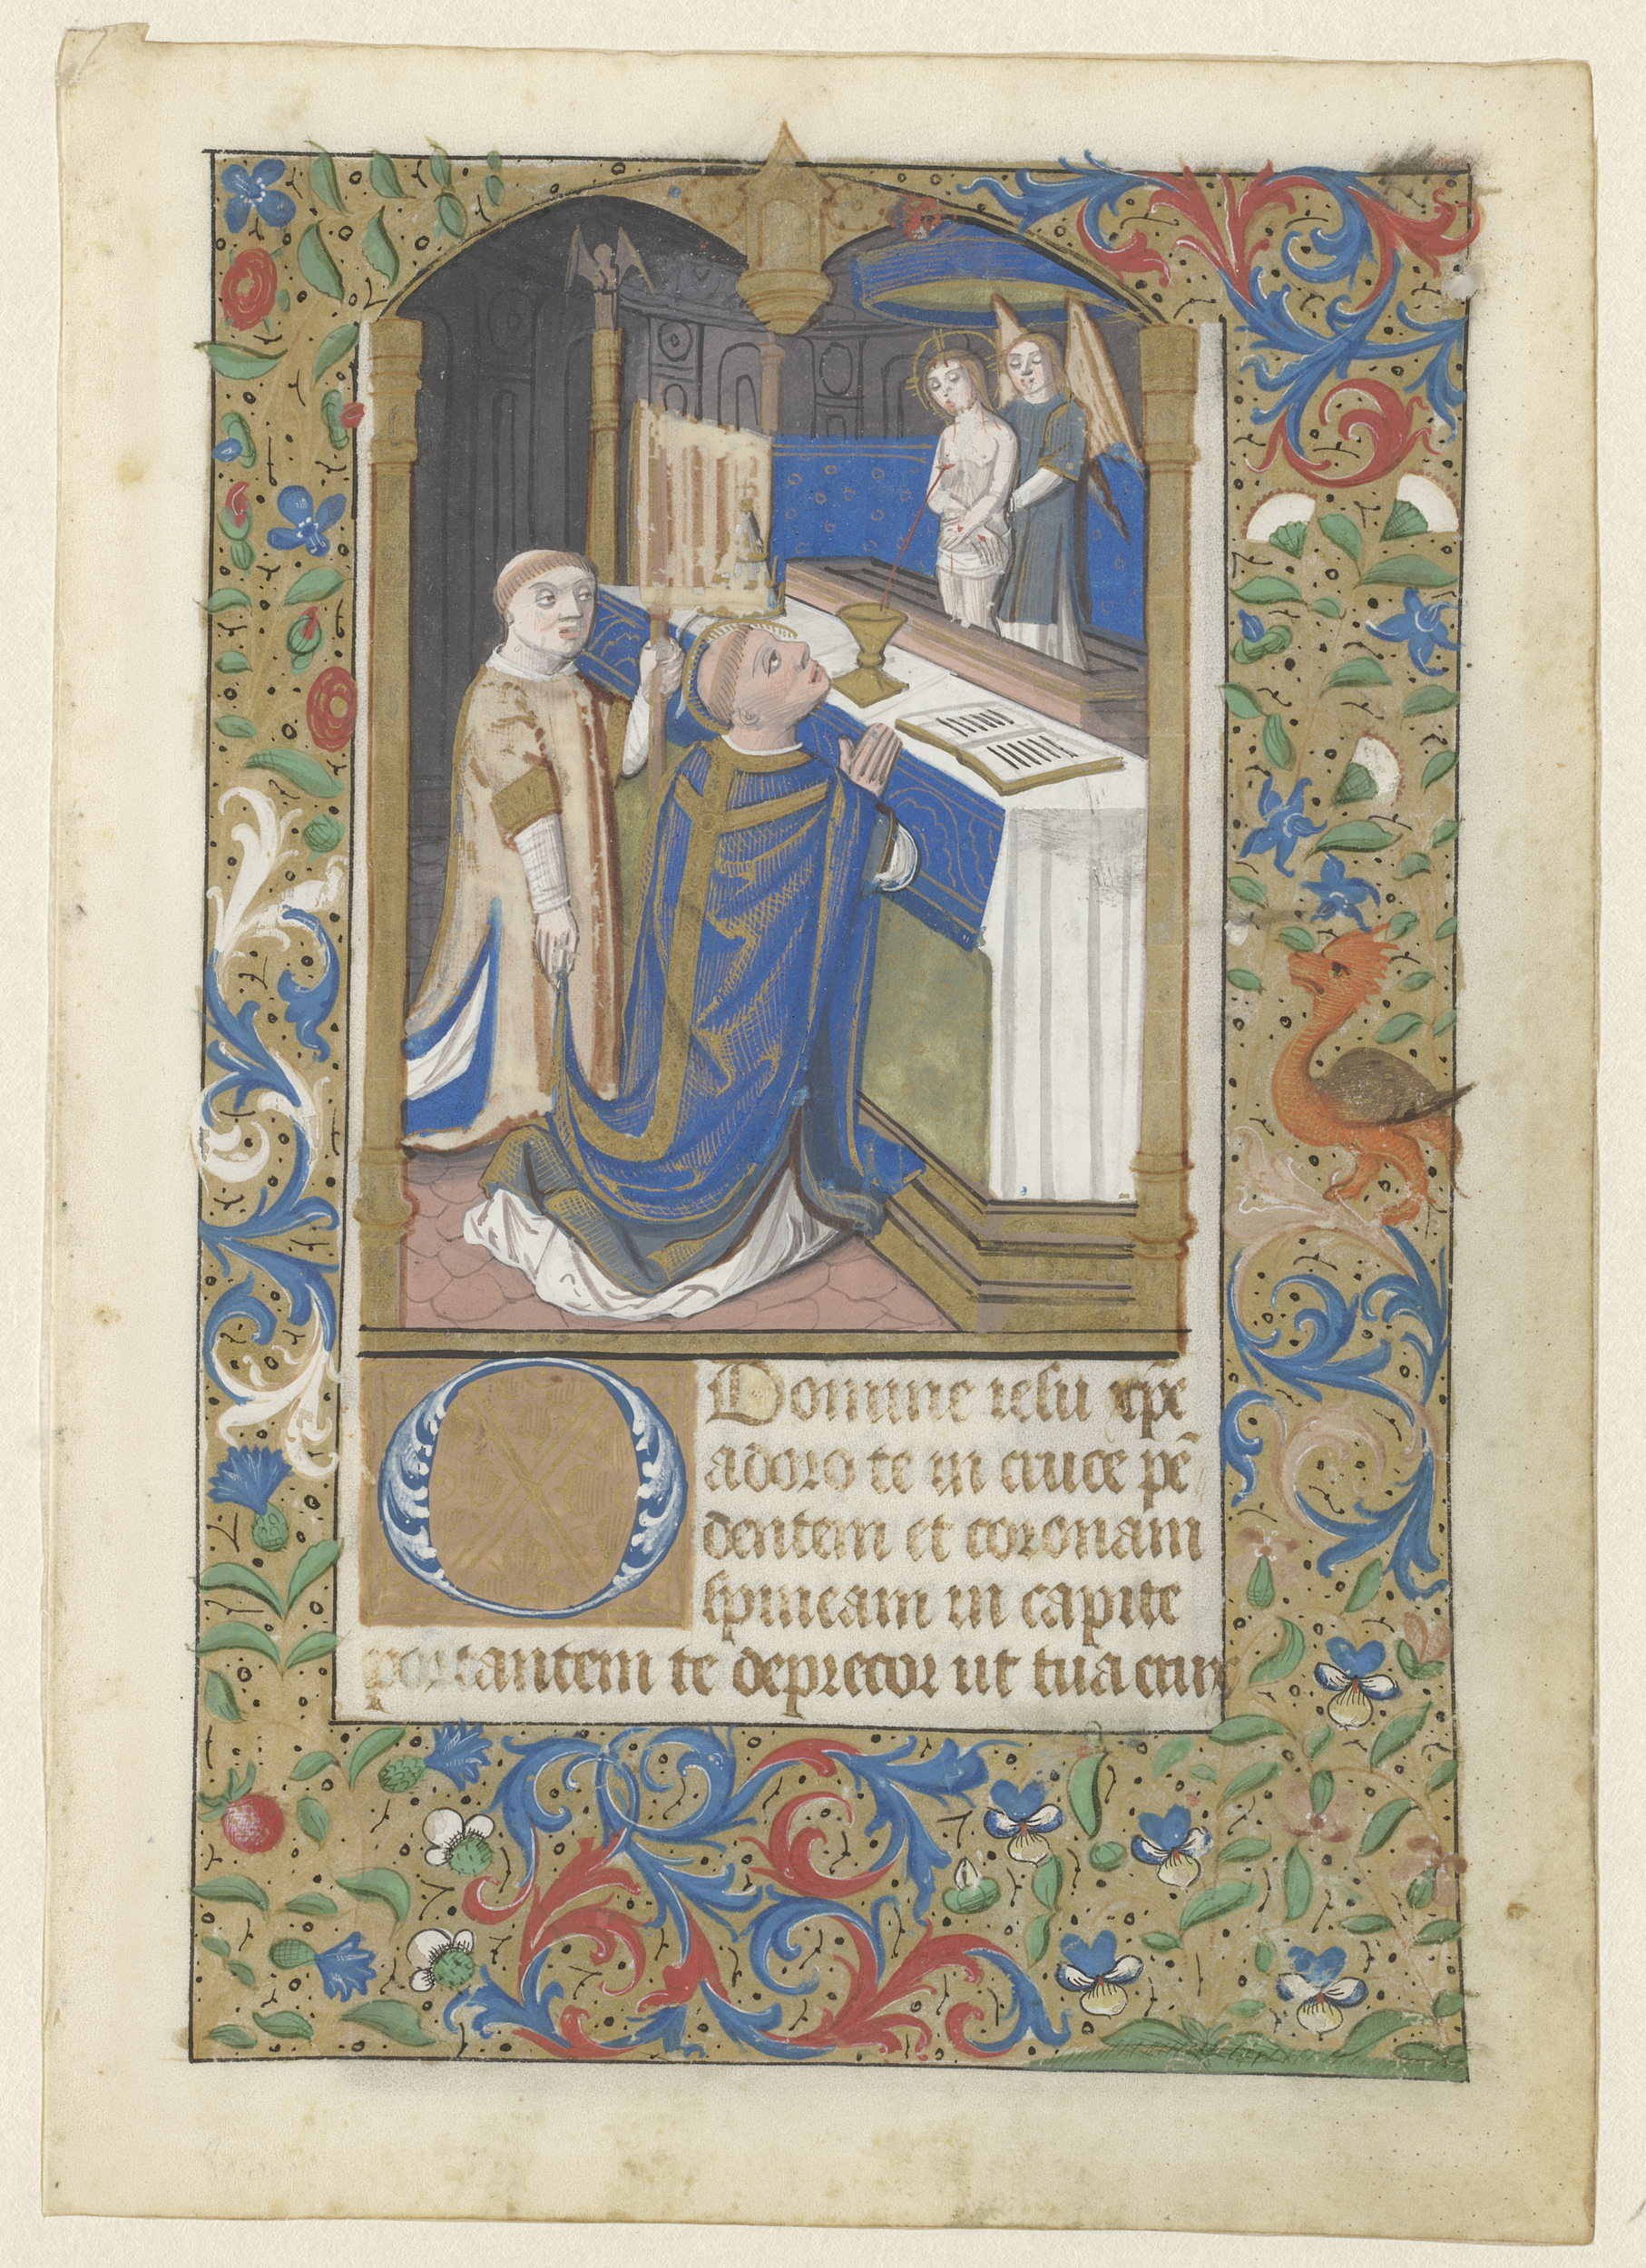 O Domine iesu xp̄e
adoro te in cruce pē
dentem et coronam
spineam in capite
portantem te deprecor ut tua crux